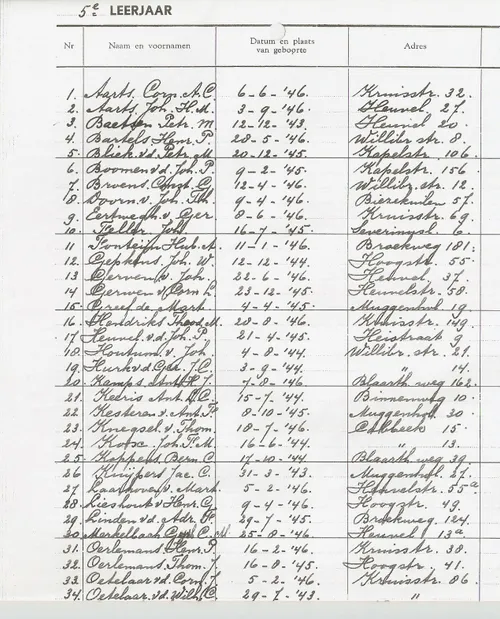 5e LEERJAAR
Nr Naam en voornamen Datum en plaats van geboorte Adres
1. Aarts, Corn. A.C. 6-6-'46. Kruisstr. 32.
2. Aarts, Joh. H.M. 3-9-'46. Heuvel, 27.
3. Baetsen Petr. M 12-12-'43. Heuvel 20.
4. Bartels Henr. P. 28-5-'46. Willibr. str. 8.
5. Bliek v.d. Petr. M. 20-12-'45. Kapelstr. 106.
6. Boomen v.d. Joh. P. 9-2-'45. Kapelstr. 156.
7. Bruens Const. C. 12-4-'46. Willibr. str. 12.
8. Doorn. v. Joh. Th. 9-4-'46. Biezekuilen 57.
9. Eertwegh. v. Ger. 8-6-'46. Kruisstr. 69.
10. Feller Joh. 16-7-'45. Severinusl. 6.
11 Fonteijn Hub. A. 11-1-'46. Broekweg 181.
12. Gepkens, Joh. W. 12-12-'44. Hoogstr. 55.
13 Gerven v. Joh. 22-6-'46. Heuvel, 37.
14 Gerwen v. Corn. L. 23-12-'45. Heuvelstr. 58.
15. Greef de Mart. 4-4-'45. Muggenhol 19.
16. Hendriks Theod. M. 28-8-'46. Kruisstr. 149.
17 Heuvel. v.d. Joh. P. 21-4-'45. Heistraat 9
18. Houtum. v. Joh. 4-8-'44. Willibr. str. 21.
19. Hurk v.d. Ger. J.C. 3-9-'44. " 14.
20. Kamps Ant. H.J. 7-8-'46 Blaarth. weg 162.
21. Keeris Ant. C. 15-7-'44. Binnenweg 10.
22. Kesteren v. Ant. 8-10-'45. Muggenhol 30.
23. Knegsel. v. Thom. 18-7-'46. 15.
24. Joh. P.M. 16-6-'44. " 13.
25. Koppens, Bern. C. 17-10-'44. Blaarth. weg 39.
26 Kuijpers Jac. C. 31-3-'43. Muggenhol. 27.
27. Laarhoven v. Mart. 5-2-'46. Heuvelstr. 55a
28. Lieshout v. Henr. C. 9-4-'46. Hoogstr. 49.
29. Linden v.d. Adr. 29-7-'45. Broekweg. 124.
30. Merkelbach C. M. 25-8-'46. Heuvel 13a
31. Oerlemans Henr. P. 16-2-'46. Kruisstr. 38.
32. Oerlemans, Thom. J. 16-8-'45. Hoogstr. 41.
33. Oetelaar v.d. Corn. J. 5-2-'46. Kruisstr. 86.
34. Oetelaar. v.d. Wilh. C. 29-7-'43. "